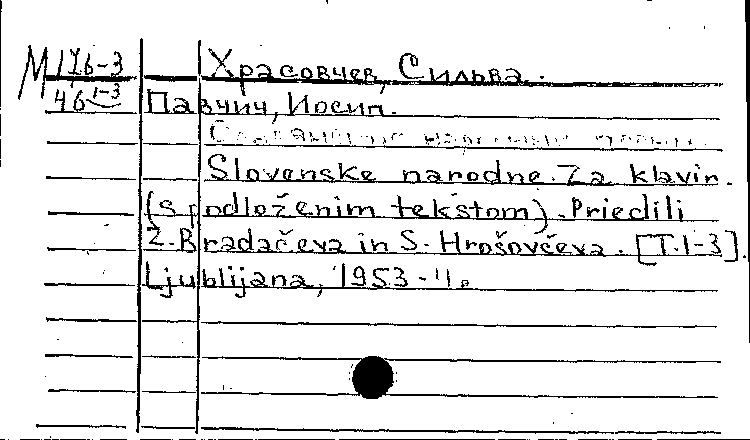 M 176-3 Храсовчев, Сильва.
46 1-3 Павчич, Иосип.
Slovenske narodne. Za klavir.
(s podloženim tekstom). Priedili
Z. Bradačeva in S. Hrošovčeva. [T.1-3].
Ljublijana, 1953-